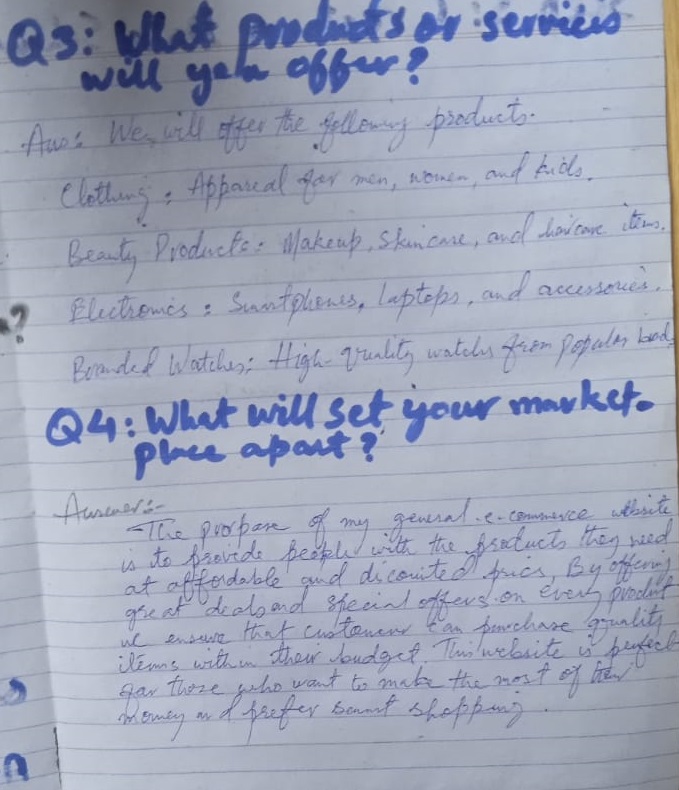 Q3: What products or services
will you offer?
Ans: We will offer the following products.
Clothing: Appareal for men, women, and kids.
Beauty Products: Makeup, Skincare, and haircare items.
?
Electronics: Smartphones, laptops, and accessories.
Branded Watches: High-quality watches from popular
Q4: What will set your market-
place apart?
Answer:-
The porpose of my general e-commerce website
is to provide people with the products they need
at affordable and dicounted prices, By offering
great deals and special offers on every product
we ensure that customers can purchase quality
items within their budget This website is perfect
for those who want to make the most of their
money and prefer smart shopping.